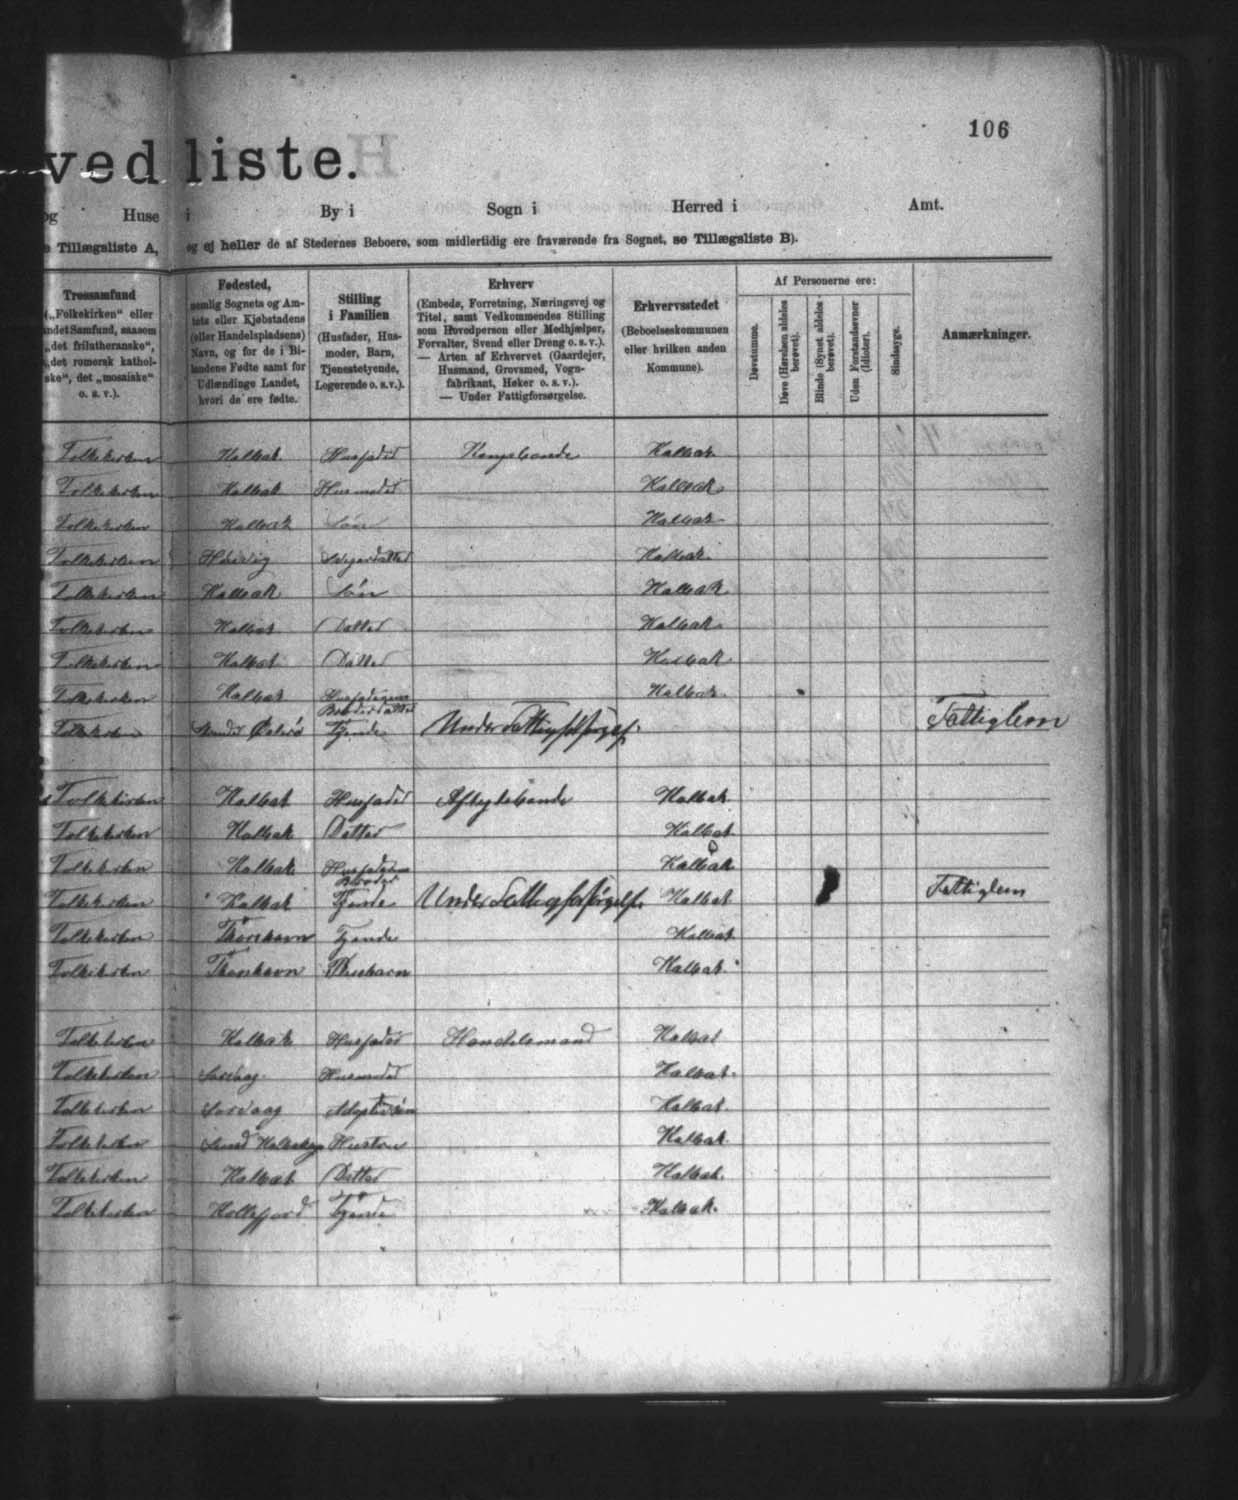 106
ved liste.
og Huse i By i Sogn i Herred i Amt.
e Tillægsliste A, og ej heller de af Stedernes Beboere, som midlertidig ere fraværende fra Sognet, se Tillægsliste B).
Trossamfund
(„Folkekirken“ eller
andet Samfund, saasom
„det frilutheranske“,
„det romersk kathol-
ske“, det „mosaiske“
o. s. v.).
Fødested,
nemlig Sognets og Am-
tets eller Kjøbstadens
(eller Handelspladsens)
Navn, og for de i Bi-
landene Fødte samt for
Udlændinge Landet,
hvori de ere fødte.
Stilling
i Familien
(Husfader, Hus-
moder, Barn,
Tjenestetyende,
Logerende o. s. v.).
Erhverv
(Embede, Forretning, Næringsvej og
Titel, samt Vedkommendes Stilling
som Hovedperson eller Medhjælper,
Forvalter, Svend eller Dreng o. s. v.).
— Arten af Erhvervet (Gaardejer,
Husmand, Grovsmed, Vogn-
fabrikant, Høker o. s. v.).
— Under Fattigforsørgelse.
Erhvervsstedet
(Beboelseskommunen
eller hvilken anden
Kommune).
Af Personerne ere:
Døvstumme.
Døve (Hørelsen aldeles
berøvet).
Blinde (Synet aldeles
berøvet).
Uden Forstandsevner
(Idioter).
Sindssyge.
Anmærkninger.
Folkekirken Kalbak Husfader Kongsbonde Kalbak
Folkekirken Kalbak Husmoder Kalbak
Folkekirken Kalbak Søn Kalbak
Folkekirken Svigerdatter Kalbak
Folkekirken Kalbak Søn Kalbak
Folkekirken Kalbak Datter Kalbak
Folkekirken Kalbak Datter Kalbak
Folkekirken Kalbak Husfaderens Kalbak
Broderdatter
Folkekirken Østerø Tjende Under Fattigforsørgelse Fattiglem
Folkekirken Kalbak Husfader Kalbak
Folkekirken Kalbak Datter Kalbak
Folkekirken Kalbak Husfaderens Kalbak
Broder
Folkekirken Kalbak Tjende Under Fattigforsørgelse Kalbak Fattiglem
Folkekirken Thorshavn Tjende Kalbak
Folkekirken Thorshavn Pleiebarn Kalbak
Folkekirken Kalbak Husfader Handelsmand Kalbak
Folkekirken Sørvaag Husmoder Kalbak
Folkekirken Sørvaag Adoptivsøn Kalbak
Folkekirken Sund Hustru Kalbak
Folkekirken Kalbak Datter Kalbak
Folkekirken Kollefjord Tjende Kalbak